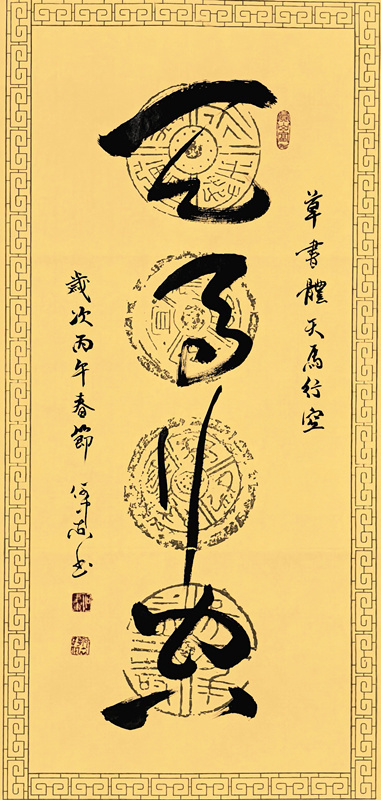 草書體天馬行空
天馬行空
歲次丙午春節